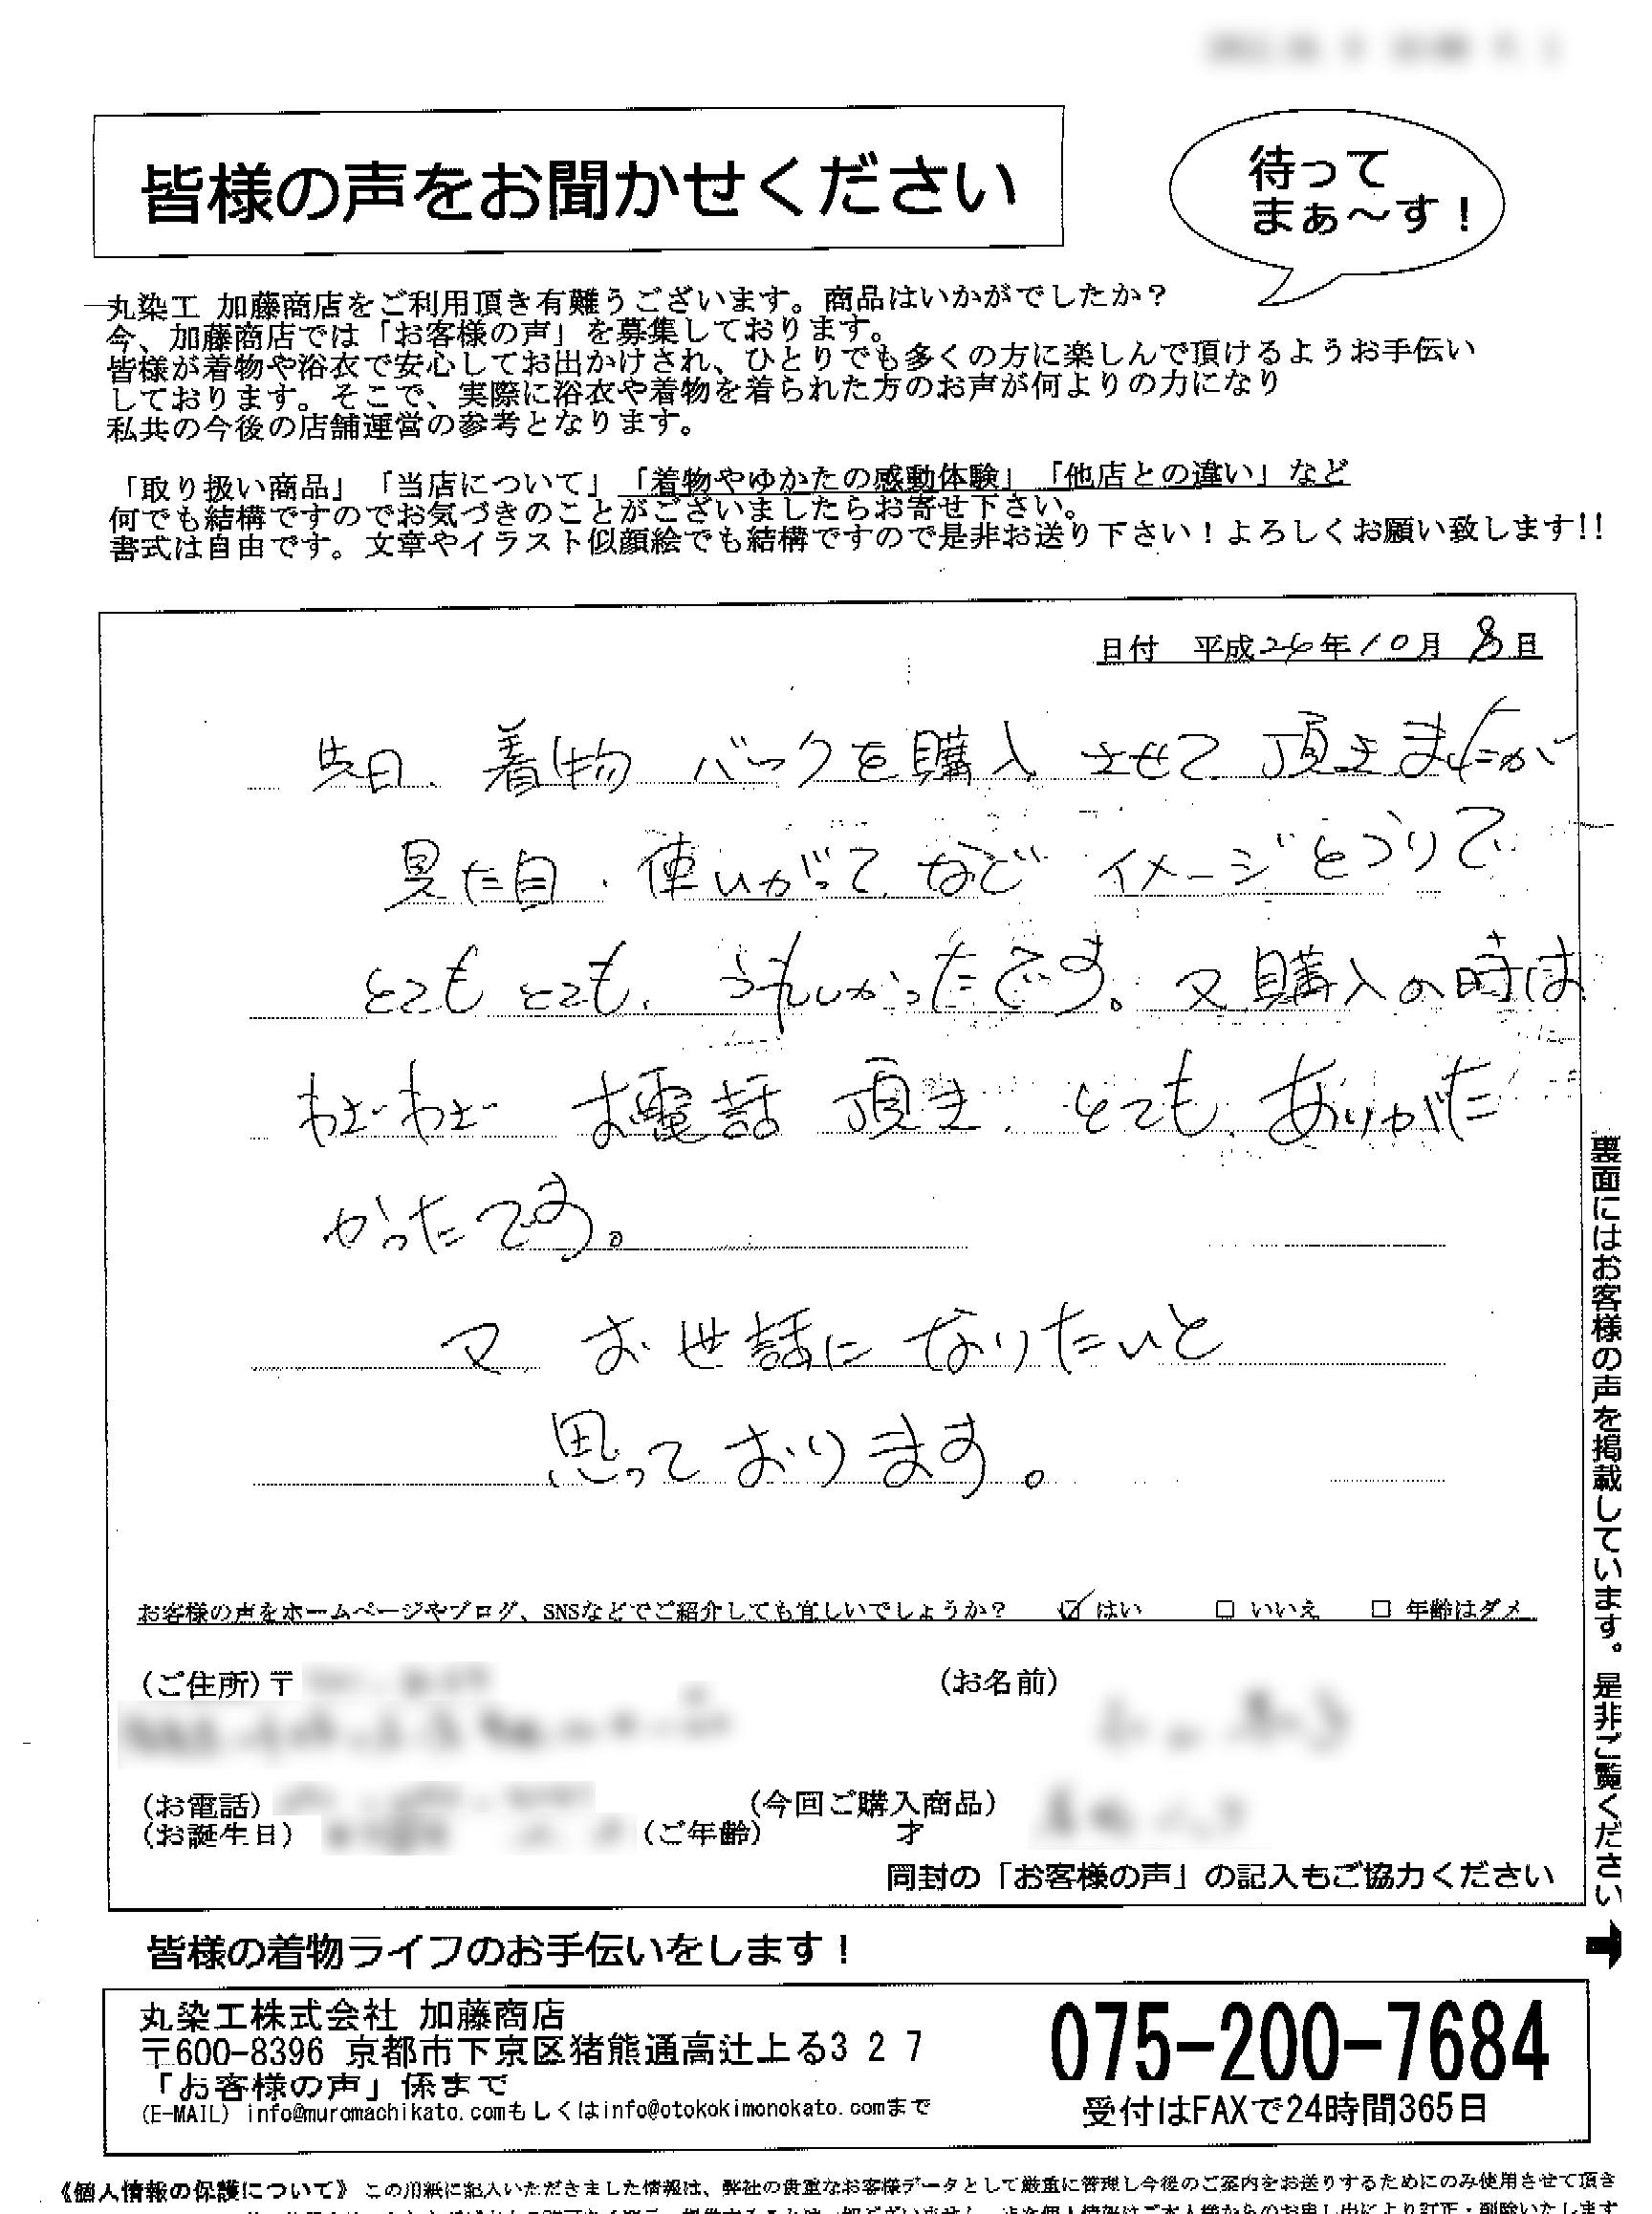 皆様の声をお聞かせください
待って
まぁ〜す!
丸染工 加藤商店をご利用頂き有難うございます。商品はいかがでしたか?
今、加藤商店では「お客様の声」を募集しております。
皆様が着物や浴衣で安心してお出かけされ、ひとりでも多くの方に楽しんで頂けるようお手伝い
しております。そこで、実際に浴衣や着物を着られた方のお声が何よりの力になり
私共の今後の店舗運営の参考となります。
「取り扱い商品」「当店について」「着物やゆかたの感動体験」「他店との違い」など
何でも結構ですのでお気づきのことがございましたらお寄せ下さい。
書式は自由です。文章やイラスト似顔絵でも結構ですので是非お送り下さい!よろしくお願い致します!!
日付 平成26年10月8日
先日、着物 バックを購入 させて 頂きましたが
見た目、使いがって など イメージどうりで
とてもとても、うれしかったです。又、購入の時は
わざわざ お電話 頂き、とても、ありがた
かったです。
又 お世話に なりたいと
思っております。
お客様の声をホームページやブログ、SNSなどでご紹介しても宜しいでしょうか? ☑はい □いいえ □年齢はダメ
(ご住所)〒
(お名前)
(お電話)
(今回ご購入商品)
(お誕生日)
(ご年齢) 才
同封の「お客様の声」の記入もご協力ください
裏面にはお客様の声を掲載しています。是非ご覧ください➡
皆様の着物ライフのお手伝いをします!
丸染工株式会社 加藤商店
〒600-8396 京都市下京区猪熊通高辻上る327
「お客様の声」係まで
(E-MAIL) info@muromachikato.comもしくはinfo@otokokimonokato.comまで
075-200-7684
受付はFAXで24時間365日
《個人情報の保護について》この用紙に記入いただきました情報は、弊社の貴重なお客様データとして厳重に管理し今後のご案内をお送りするためにのみ使用させて頂き